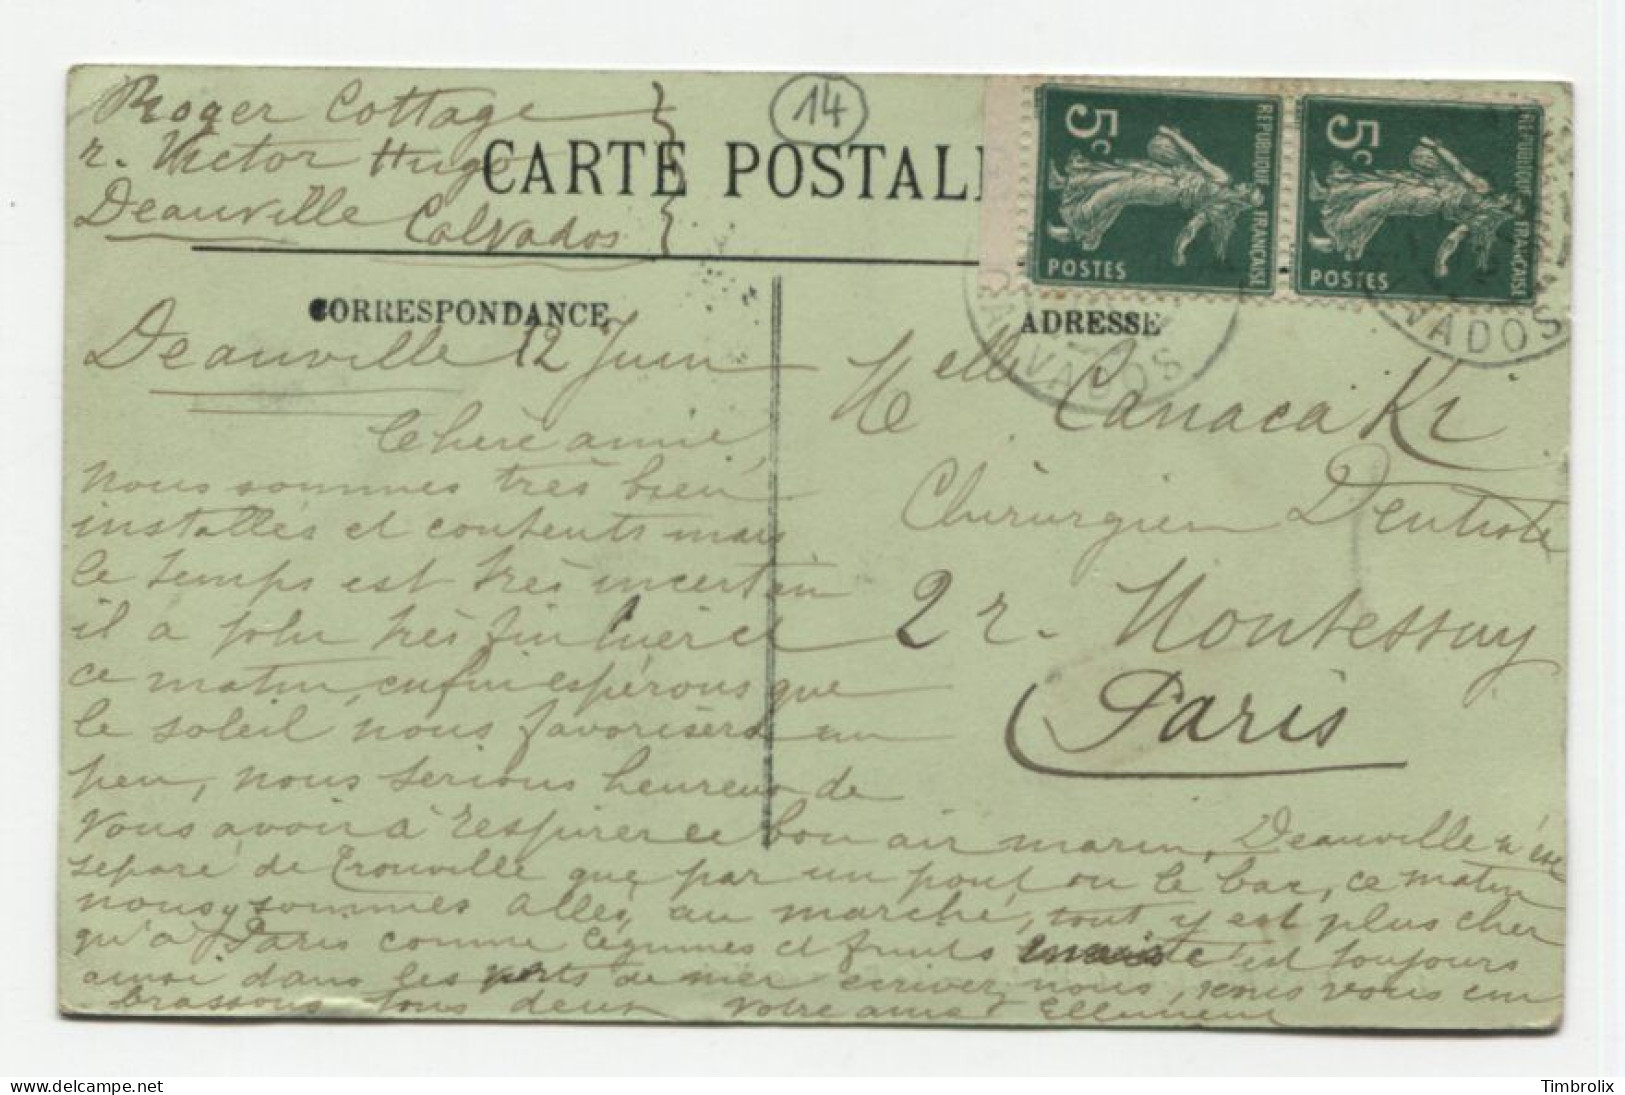 Roger Cottage
r. Victor Hugo
Deauville Calvados
14
CARTE POSTAL
5c
REPUBLIQUE FRANÇAISE
POSTES
5c
REPUBLIQUE FRANÇAISE
POSTES
CALVADOS
VADOS
CORRESPONDANCE
ADRESSE
Deauville 12 Juin
Chère amie,
nous sommes très bien
installés et contents mais
le temps est très incertain
il a plu très fin hier et
ce matin, enfin espérons que
le soleil nous favorisera un
peu, nous serions heureux de
vous avoir à respirer ce bon air marin, Deauville n'est
séparé de Trouville que par un pont ou le bac, ce matin
nous sommes allés au marché, tout y est plus cher
qu'à Paris comme légumes et fruits mais c'est toujours
ainsi dans les ports de mer écrivez nous, nous vous em
brassons tous deux votre amie
Melle Canacaki
Chirurgien Dentiste
2 r. Montessuy
Paris
delcampe.net
Timbrolix